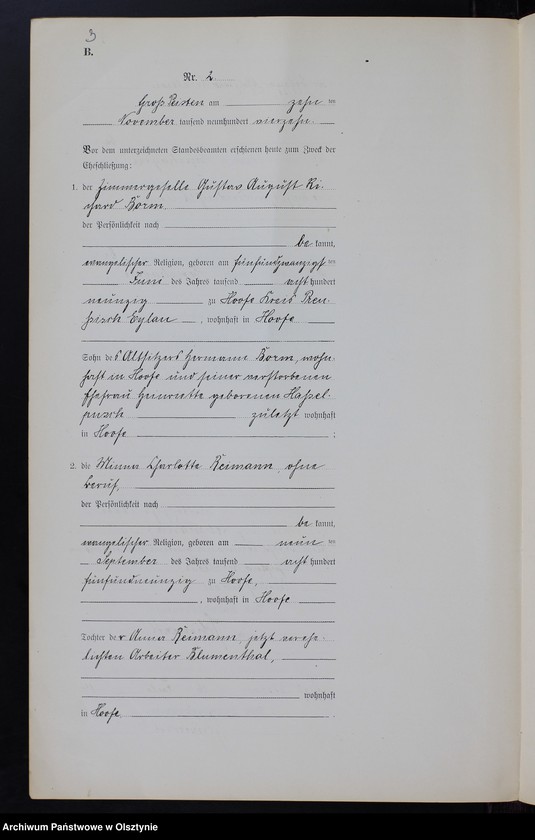 3
B.
Nr. 2.
Groß Peisten am zehn ten
November tausend neunhundert vierzehn.
Vor dem unterzeichneten Standesbeamten erschienen heute zum Zweck der
Eheschließung:
1. der Zimmergeselle Gustav August Ri-
chard Borm
der Persönlichkeit nach
be kannt,
evangelischer Religion, geboren am fünfundzwanzigsten
Juni des Jahres tausend acht hundert
neunzig zu Hoofe Kreis Preu-
ßisch Eylau, wohnhaft in Hoofe
Sohn des Altsitzers Hermann Borm, wohn-
haft in Hoofe und seiner verstorbenen
Ehefrau Henriette geborenen Hassel-
pusch zuletzt wohnhaft
in Hoofe ;
2. die Minna Charlotte Reimann, ohne
Beruf,
der Persönlichkeit nach
be kannt,
evangelischer Religion, geboren am neun ten
September des Jahres tausend acht hundert
fünfundneunzig zu Hoofe,
, wohnhaft in Hoofe
Tochter der Anna Reimann, jetzt verehe-
lichten Arbeiter Blumenthal,
wohnhaft
in Hoofe.
Archiwum Państwowe w Olsztynie